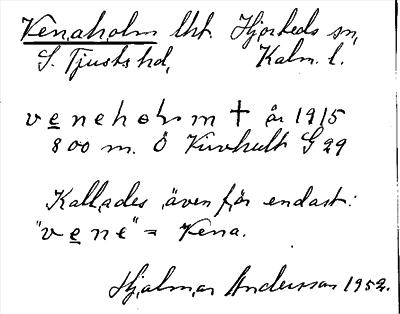 Venaholm lht. Hjorteds sn,
S. Tjusts hd, Kalm. l.
veneholm † år 1915
800 m. Ö Kuvhult G 29
Kallades även för endast:
"vene" = Vena.
Hjalmar Andersson 1952.